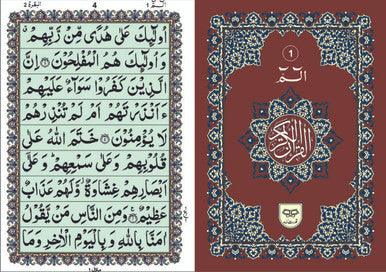 البقرة ٢
4
الٓمّٓ ١
اُولٰٓئِكَ عَلٰى هُدًى مِّنْ رَّبِّهِمْ
وَ اُولٰٓئِكَ هُمُ الْمُفْلِحُوْنَ ۝ اِنَّ
الَّذِيْنَ كَفَرُوْا سَوَآءٌ عَلَيْهِمْ
ءَاَنْذَرْتَهُمْ اَمْ لَمْ تُنْذِرْهُمْ
لَا يُؤْمِنُوْنَ ۝ خَتَمَ اللّٰهُ عَلٰى
قُلُوْبِهِمْ وَ عَلٰى سَمْعِهِمْ ؕ وَ عَلٰٓى
اَبْصَارِهِمْ غِشَاوَةٌ ؗ وَّ لَهُمْ عَذَابٌ
عَظِيْمٌ ۝ وَ مِنَ النَّاسِ مَنْ يَّقُوْلُ
اٰمَنَّا بِاللّٰهِ وَ بِالْيَوْمِ الْاٰخِرِ وَ مَا
1
الٓمّٓ
القرآن الكريم